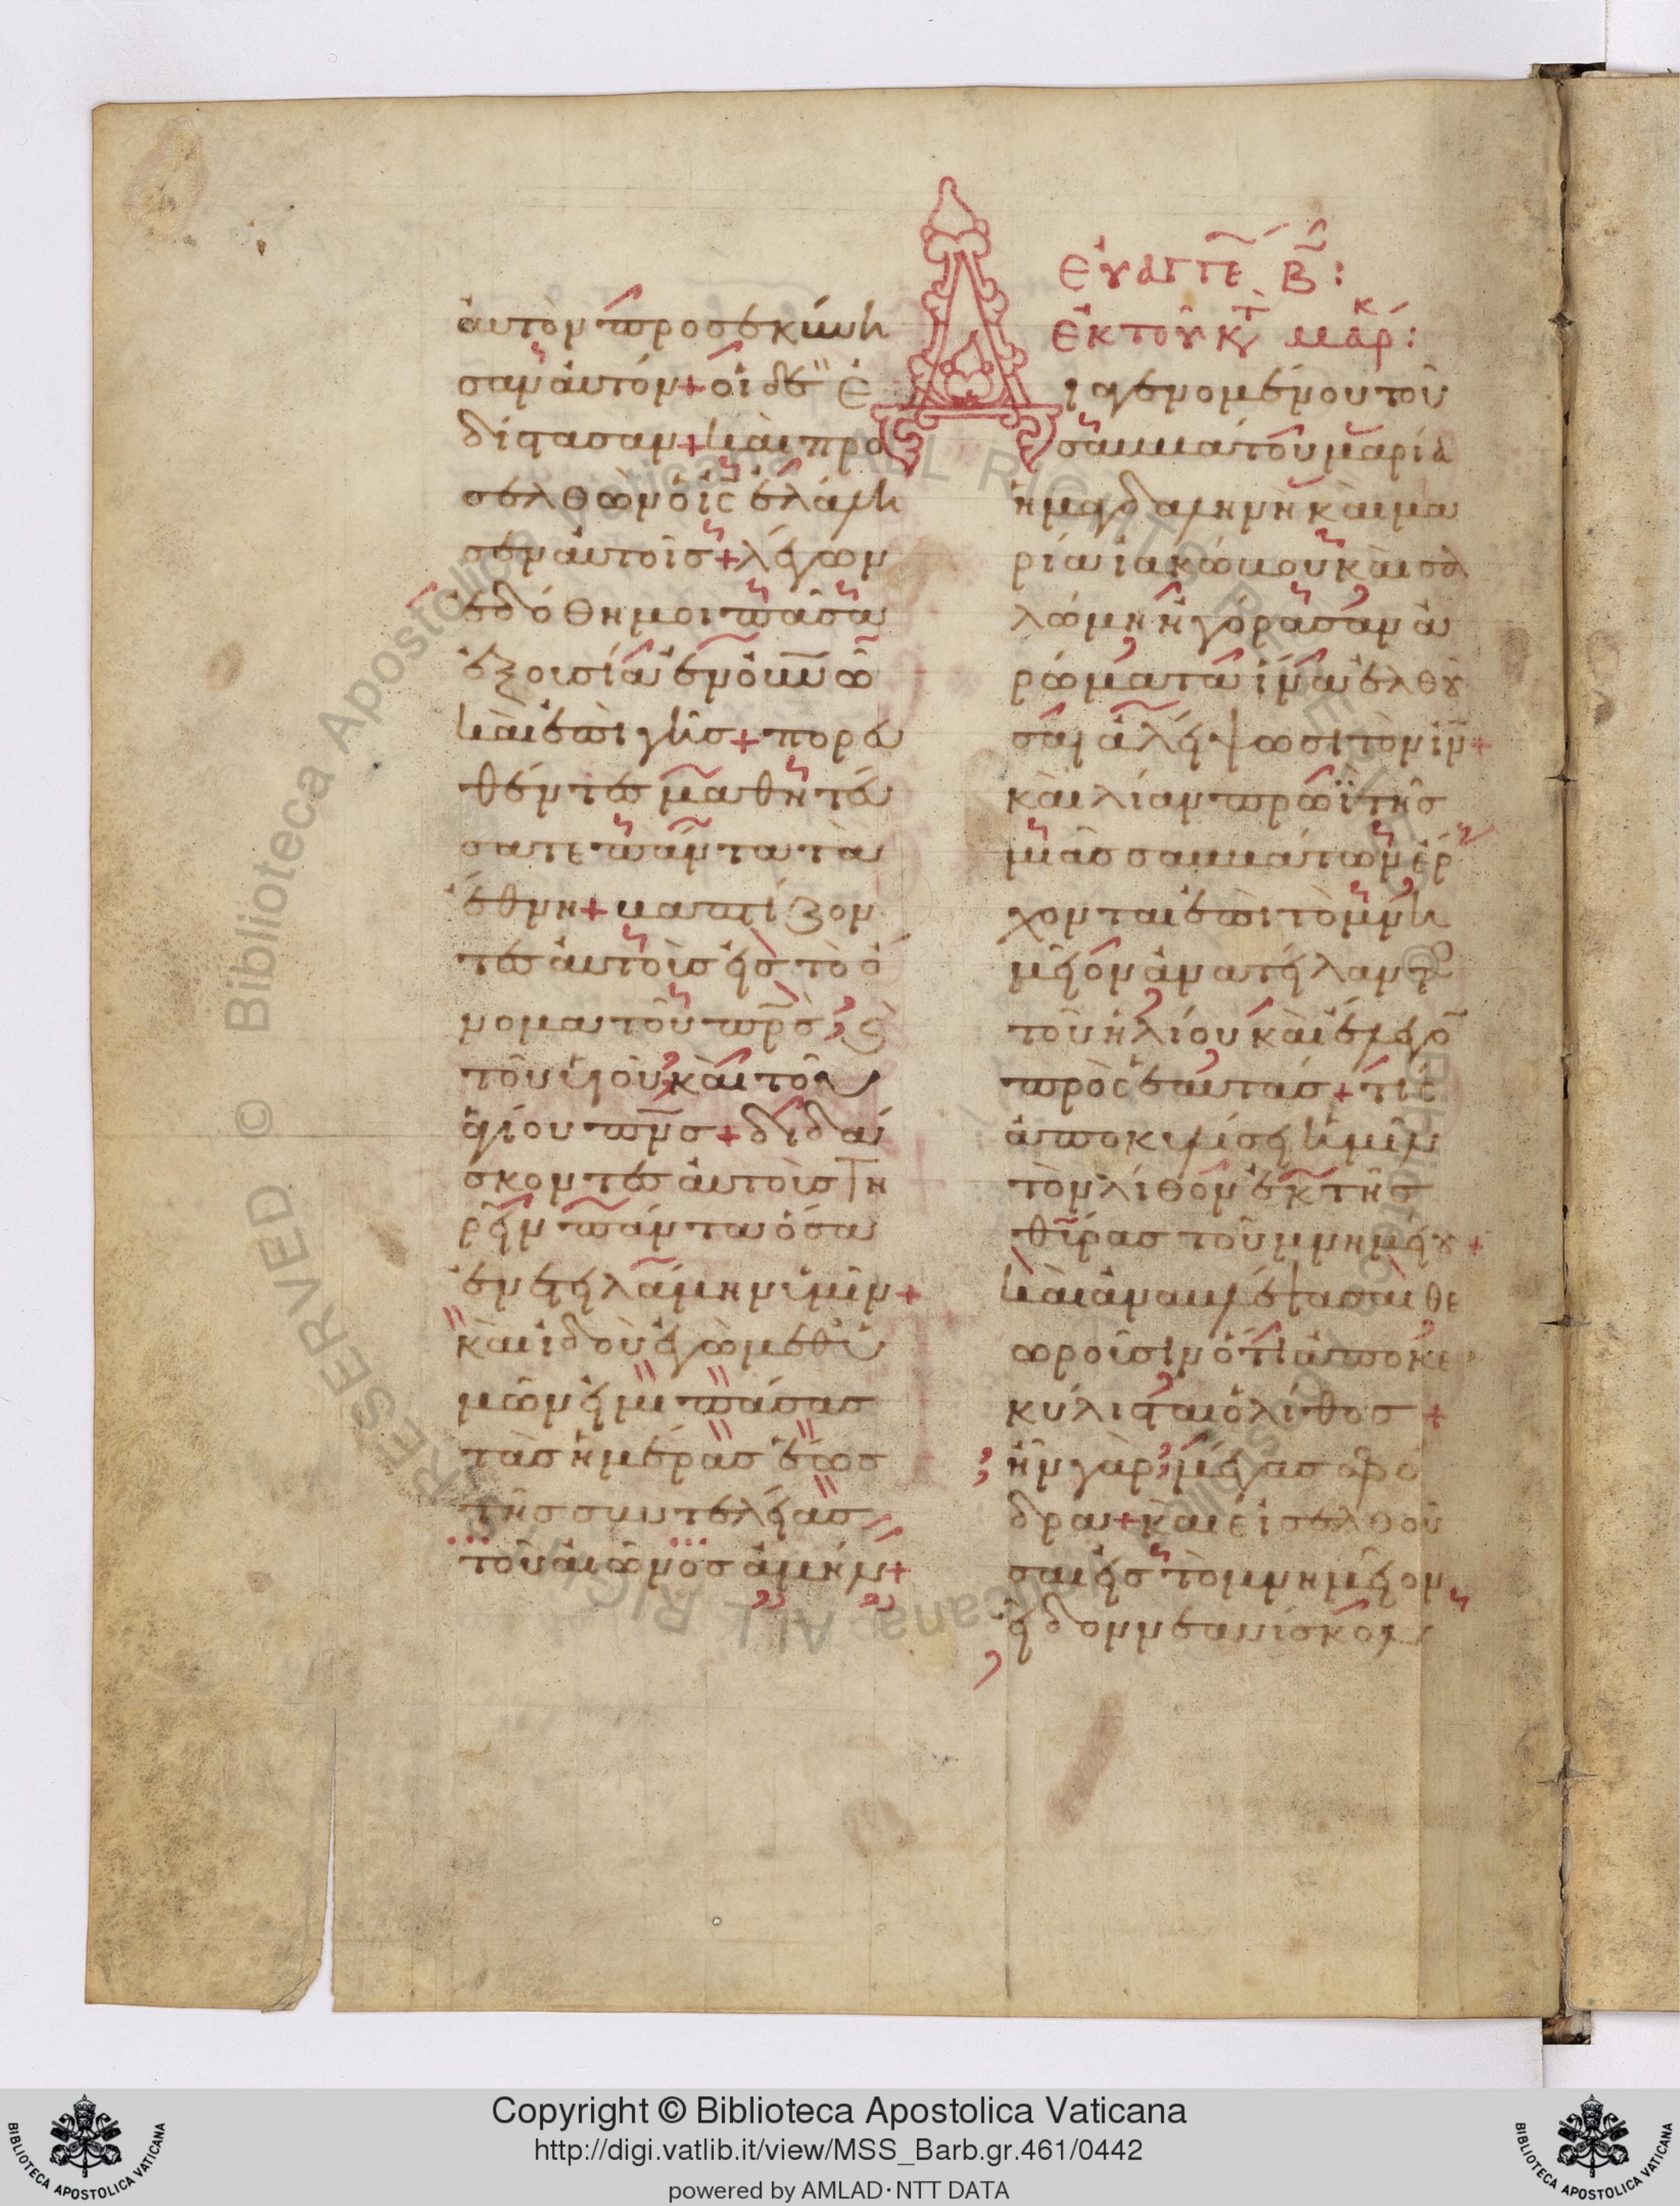 αυτὸν προσεκύνη
σαν αυτόν + οἱ δὲ ἐ
δίστασαν + και προ
σελθὼν ὁ ις ἐλάλη
σεν αυτοῖσ + λέγων
ἐδόθη μοι πᾶσα
ἐξουσία ἐν οὐνῶ
και ἐπι γῆσ + πορευ
θέντεσ μαθητεύ
σατε πάντα τὰ
ἔθνη + βαπτίζον
τεσ αὐτοὺσ εἰσ τὸ ὄ
νομα τοῦ πρσ· ϛ
τοῦ υἱοῦ και τοῦ
ἁγίου πνσ + διδά
σκοντεσ αὐτοὺσ τη
ρεῖν πάντα ὅσα
ἐνετειλάμην ὑμῖν +
και ιδοὺ ἐγὼ μεθ ὑ
μῶν εἰμι πάσασ
τὰσ ἡμέρασ ἕωσ
τῆσ συντελείασ
τοῦ αἰῶνοσ ἀμήν +
εὐαγγε Β:
ἐκ τοῦ κτ μαρκ:
Διαγενομένου τοῦ
σαββάτου μαρία
ἡ μαγδαληνὴ και μα
ρία ιακώβου και σα
λώμη ἠγόρασαν ἀ
ρώματα ἵνα ἐλθοῦ
σαι ἀλείψωσι τὸν ιν +
και λίαν πρωῒ τῆσ
μιᾶσ σαββάτων ἔρ
χονται ἐπι τὸ μνη
μεῖον ἀνατείλαντο
τοῦ ἡλίου και ἔλεγο
πρὸς ἑαυτάσ + τίς
ἀποκυλίσει ἡμῖν
τὸν λίθον ἐκ τῆσ
θύρασ τοῦ μνημείου +
και ἀναβλέψασαι θε
ωροῦσιν ὅτι ἀποκε
κύλισται ὁ λίθοσ +
ἦν γὰρ μέγασ σφό
δρα + και εἰσελθοῦ
σαι εἰσ τὸ μνημεῖον
εἶδον νεανίσκον
Copyright © Biblioteca Apostolica Vaticana
http://digi.vatlib.it/view/MSS_Barb.gr.461/0442
powered by AMLAD·NTT DATA